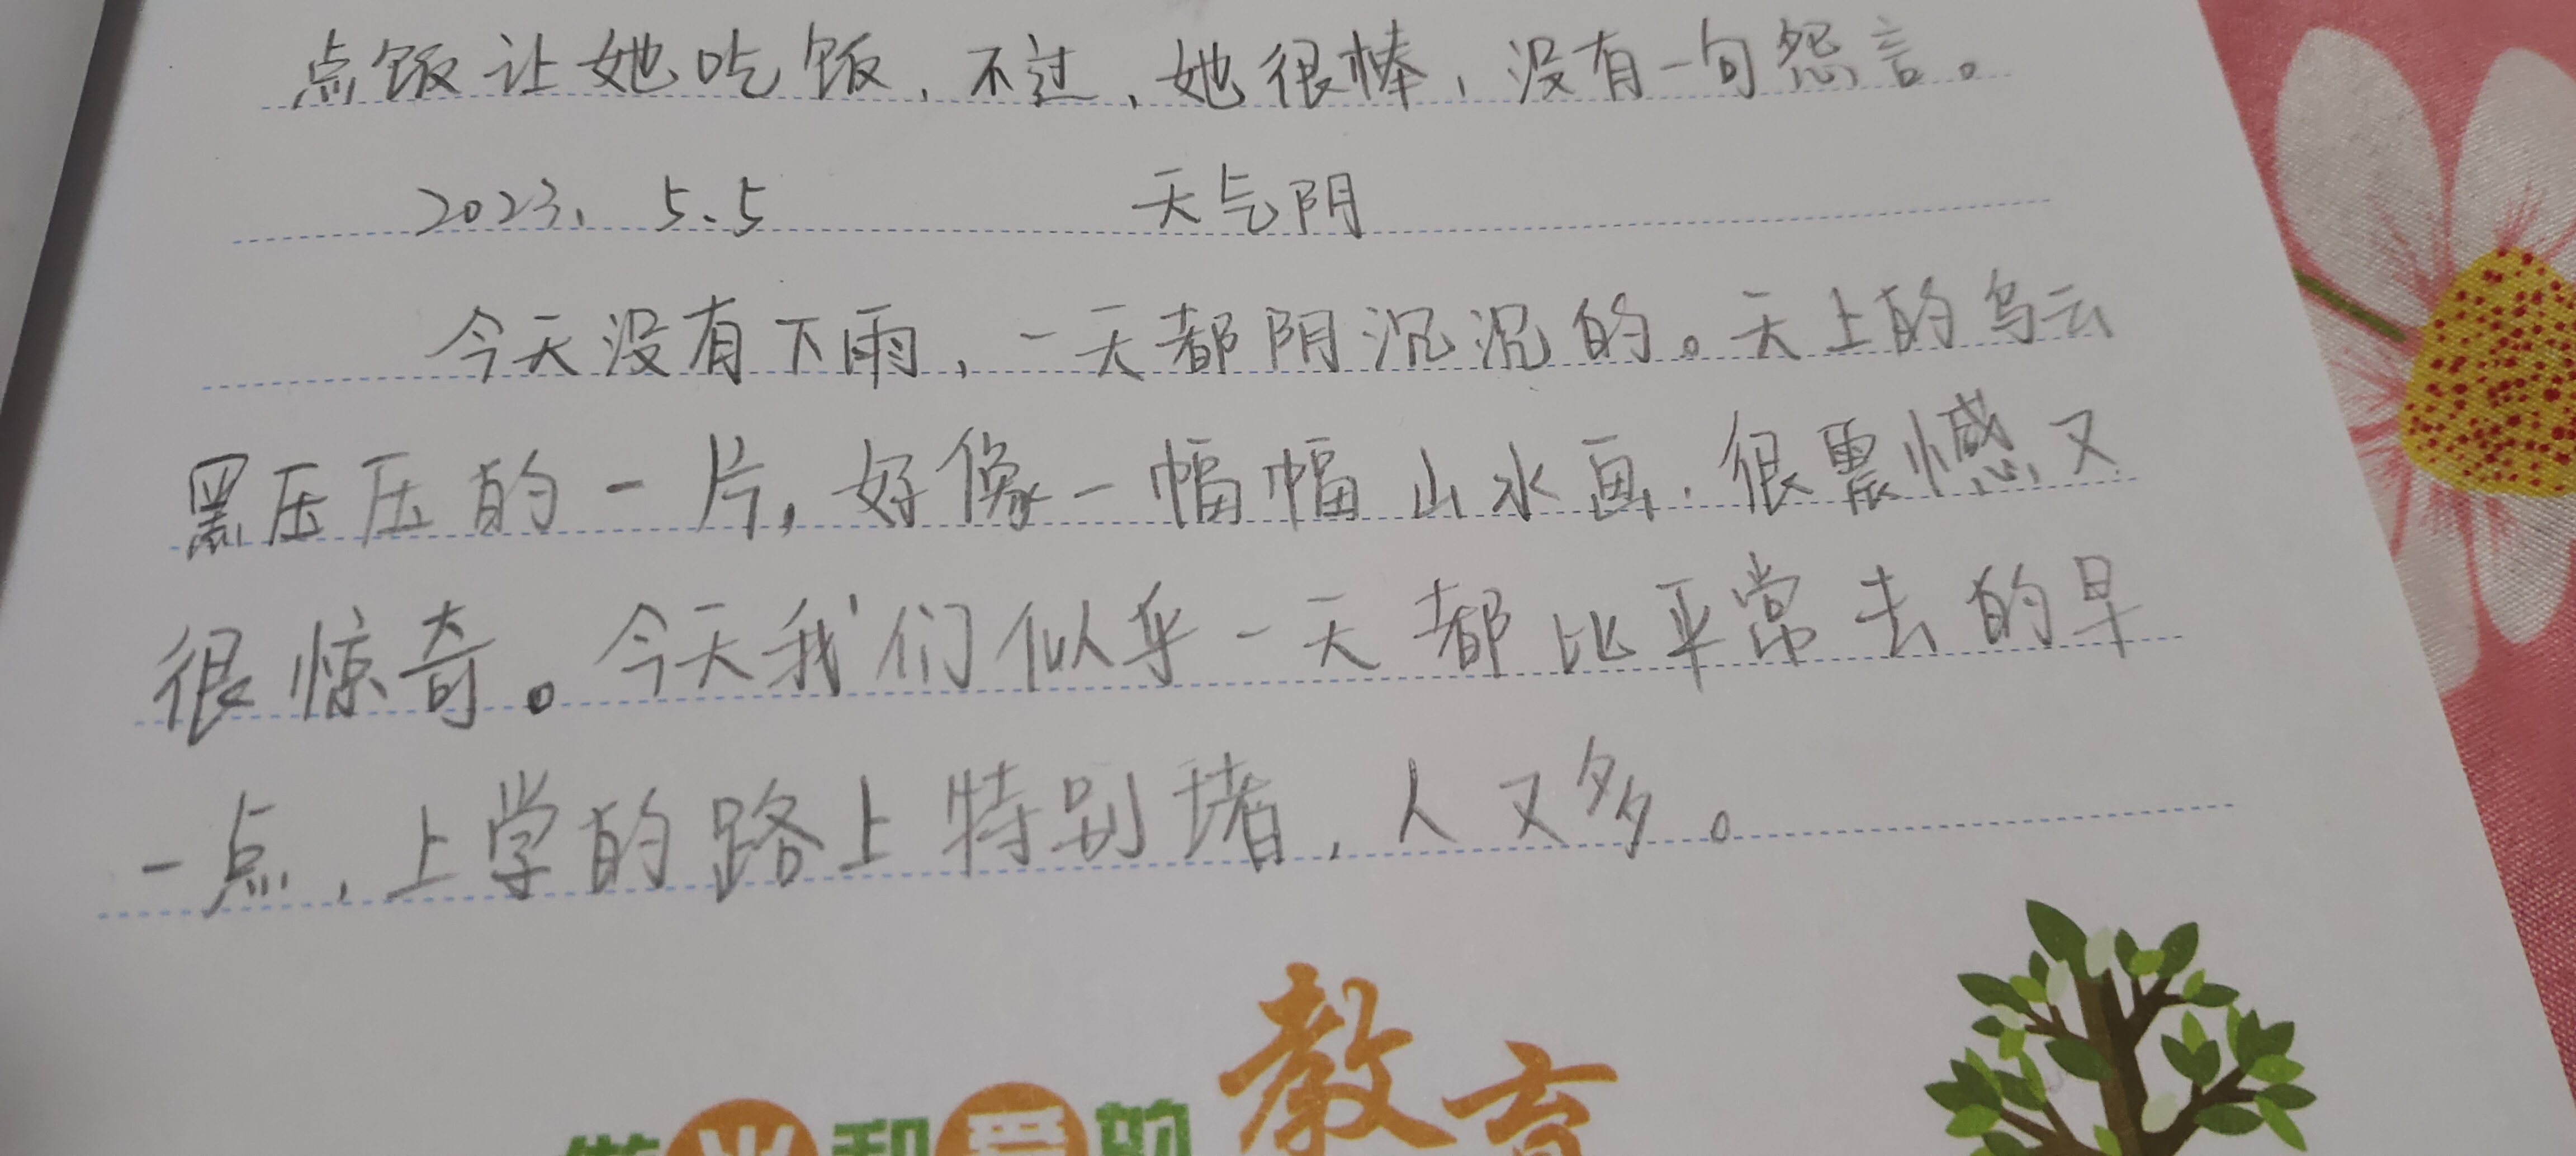 点饭让她吃饭，不过，她很棒，没有一句怨言。
2023. 5.5 天气阴
今天没有下雨，一天都阴沉沉的。天上的乌云
黑压压的一片，好像一幅幅山水画，很震憾又
很惊奇。今天我们似乎一天都比平常去的早
一点，上学的路上特别堵，人又多。
做光和爱的教育